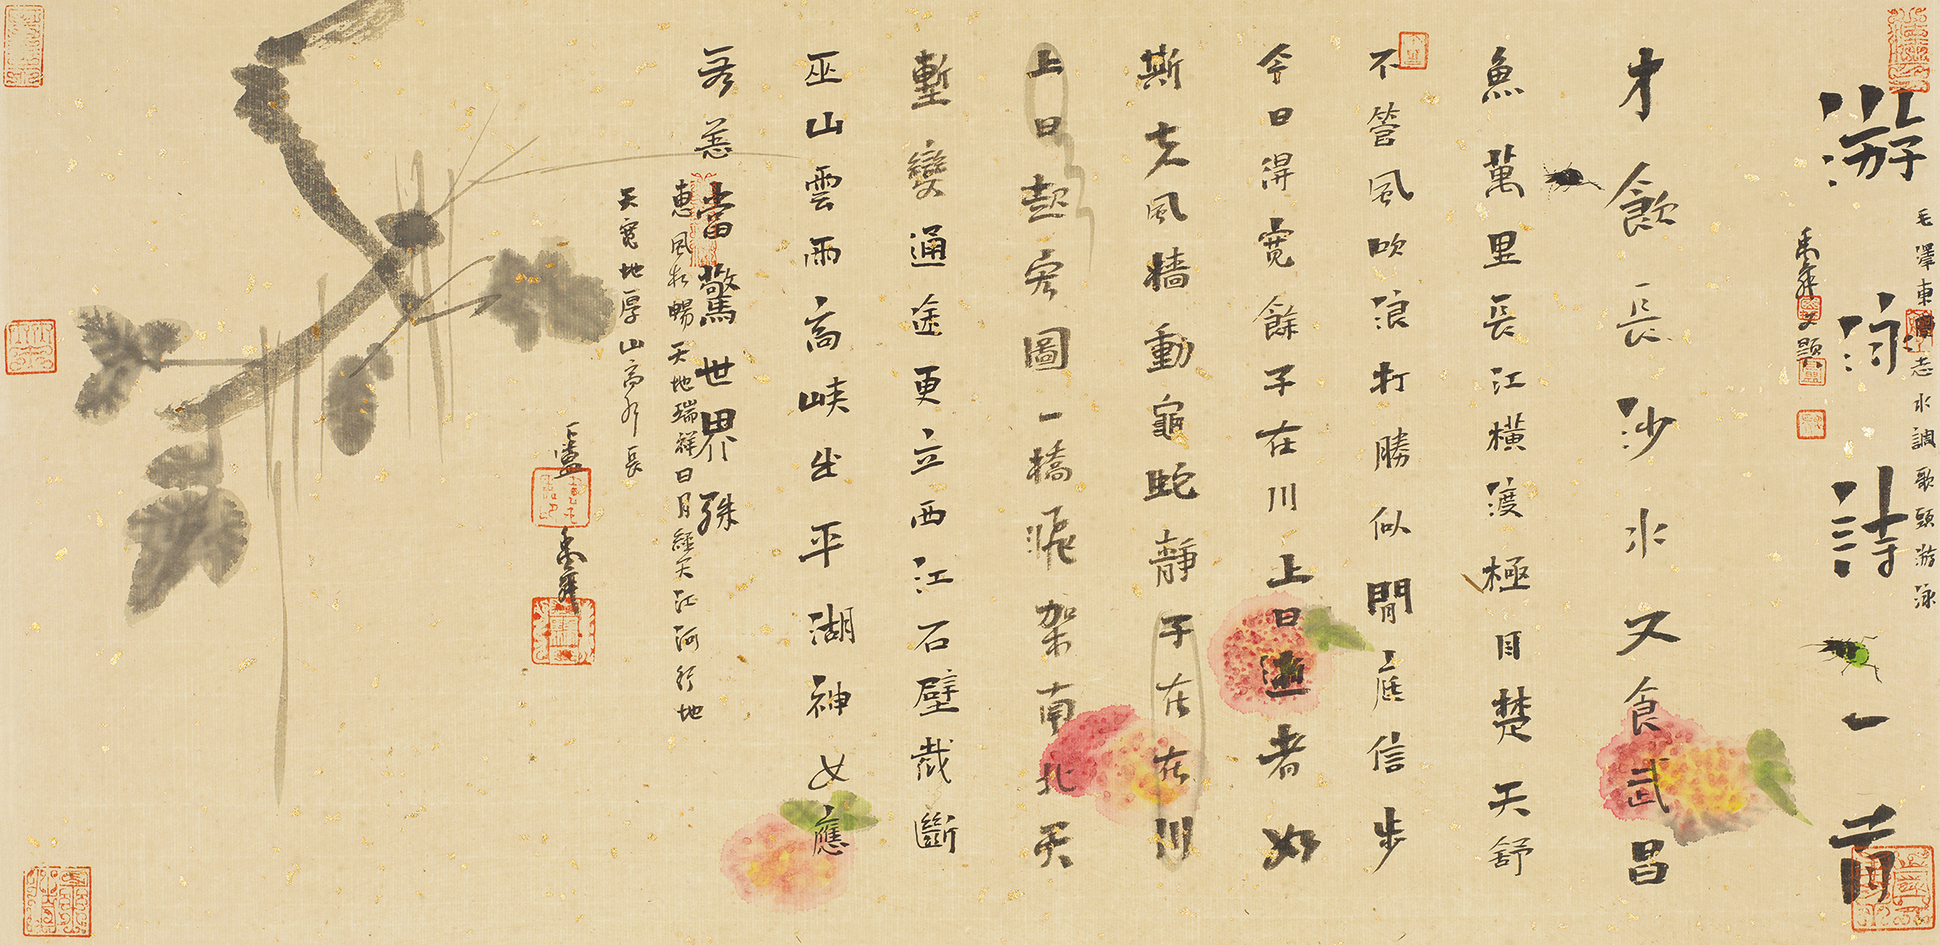 毛澤東同志水調歌頭游泳
游泳詩一首
禹舜又題
才飲長沙水又食武昌
魚萬里長江橫渡極目楚天舒
不管風吹浪打勝似閒庭信步
今日得寬餘子在川上曰逝者如
斯夫風檣動龜蛇靜子在在川
上曰起宏圖一橋飛架南北天
塹變通途更立西江石壁截斷
巫山雲雨高峽出平湖神女應
無恙當驚世界殊
惠風和暢天地瑞祥日月經天江河行地
天寬地厚山高水長
禹舜